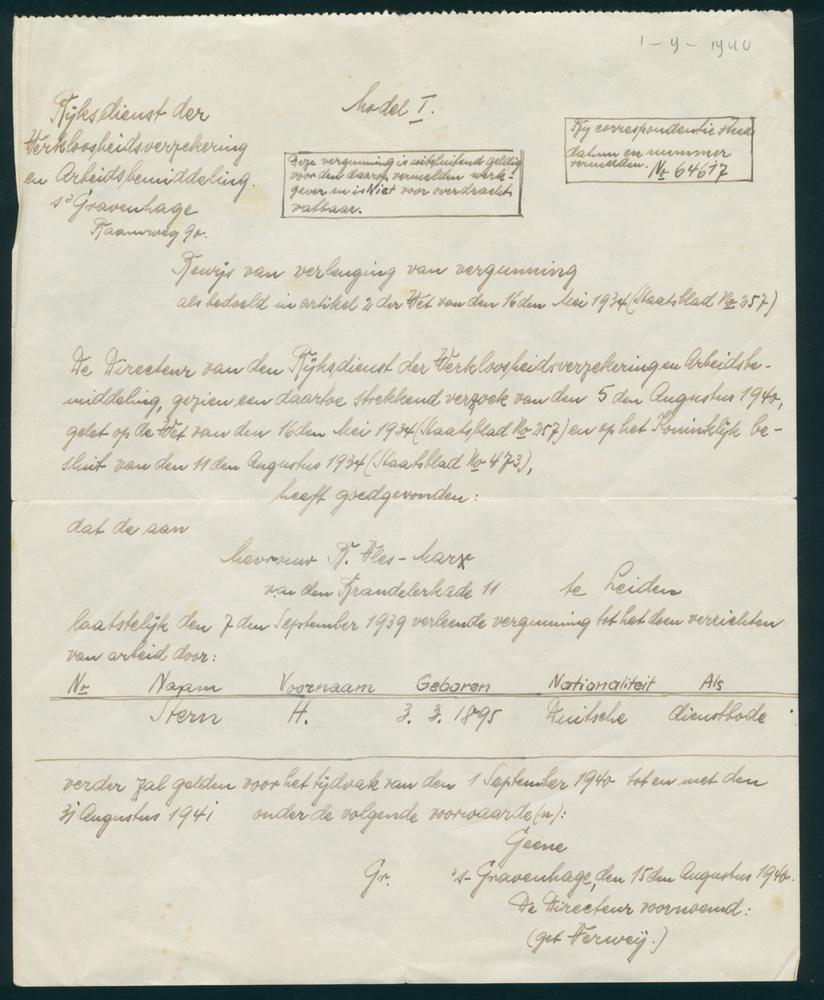 1-9-1940
Rijksdienst der
Werkloosheidsverzekering
en Arbeidsbemiddeling.
's Gravenhage
Raamweg 90.
Model I.
Deze vergunning is uitsluitend geldig
voor den daarop vermelden werk-
gever en is Niet voor overdracht
vatbaar.
Bij correspondentie steeds
datum en nummer
vermelden. No 64617
Bewijs van verlenging van vergunning
als bedoeld in artikel 2 der Wet van den 16den Mei 1934 (Staatsblad No 257)
De Directeur van den Rijksdienst der Werkloosheidsverzekering en Arbeidsbe-
middeling, gezien een daartoe strekkend verzoek van den 5 den Augustus 1940,
gelet op de Wet van den 16den Mei 1934 (Staatsblad No 257) en op het Koninklijk be-
sluit van den 11 den Augustus 1934 (Staatsblad No 473),
heeft goedgevonden:
dat de aan
Mevrouw R. Fles-Marx
van den Brandelerkade 11 te Leiden
laatstelijk den 7 den September 1939 verleende vergunning tot het doen verrichten
van arbeid door:
No Naam Voornaam Geboren Nationaliteit Als
Stern H. 3. 3. 1895 Duitsche dienstbode
verder zal gelden voor het tijdvak van den 1 September 1940 tot en met den
31 Augustus 1941 onder de volgende voorwaarde(n):
Geene
Gr. 's-Gravenhage, den 15den Augustus 1940.
De Directeur voornoemd:
(get Verweij.)